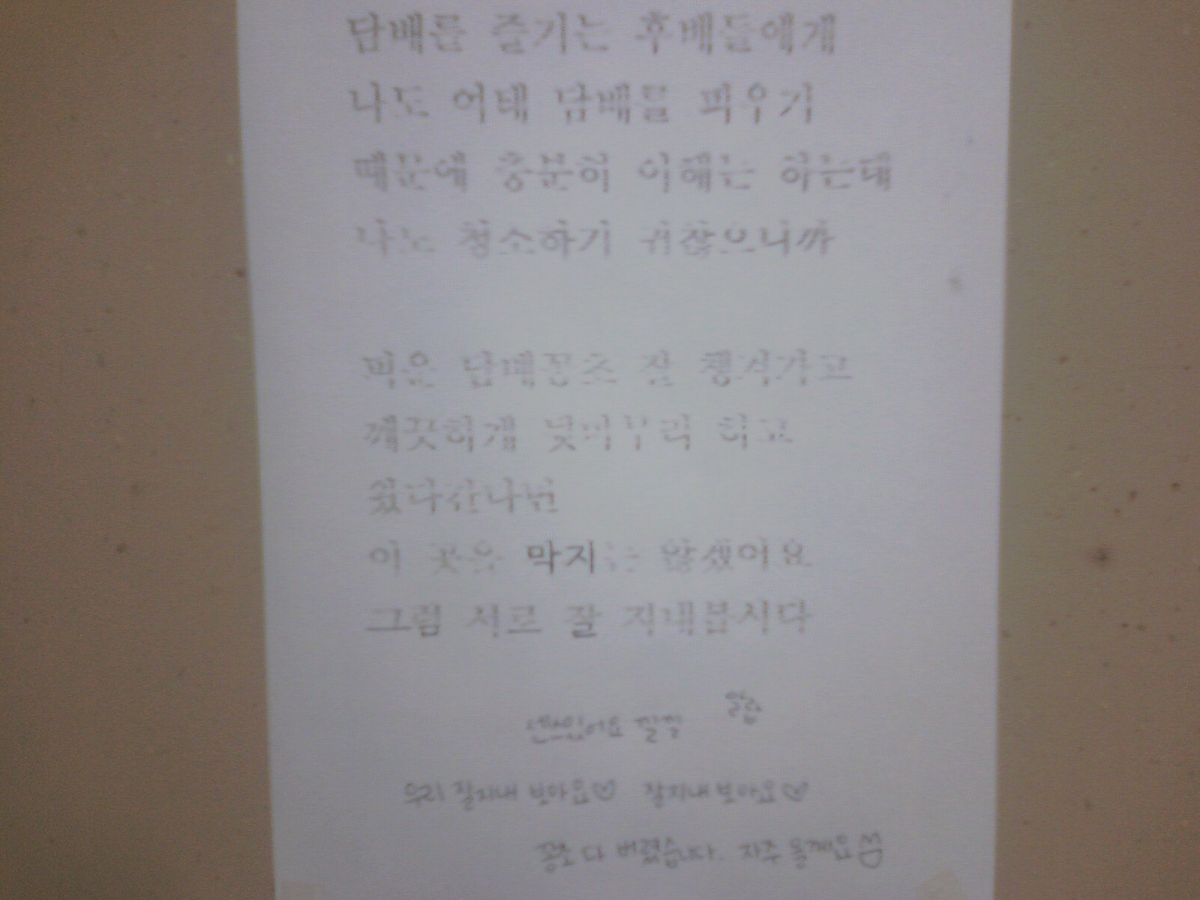 담배를 즐기는 후배들에게
나도 어태 담배를 피우기
때문에 충분히 이해는 하는데
나도 청소하기 귀찮으니까
피운 담배꽁초 잘 챙겨가고
깨끗하게 뒷마무리 하고
쉬다간다면
이 곳을 막지는 않겠어요
그럼 서로 잘 지내봅시다
센스있어요 낄낄
우리 잘지내 보아요♡ 잘지내보아요♡
꽁초 다 버렸습니다. 자주 올게요